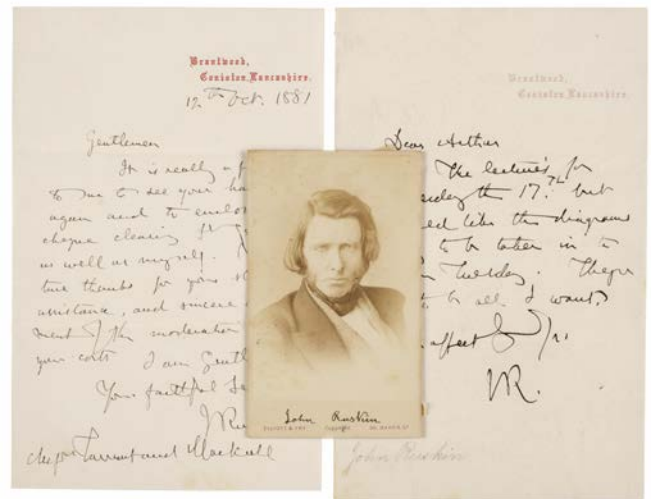 Brantwood,
Coniston, Lancashire.
12th Oct. 1881
Gentlemen
It is really a
to me to see your
again and to
cheque clearing
as well as myself.
true thanks for your
assistance, and sincere
ment of the moderation
your costs I am Gentl
Your faithful Se
JRu
Tarrant and Mackrell
Brantwood,
Coniston, Lancashire.
Dear Arthur
The lecture's for
the 17th but
like the diagrams
to be taken in to
Tuesday. They're
to be all I want.
affect
JR.
John Ruskin
John Ruskin
ELLIOTT & FRY Copyright 55, BAKER ST